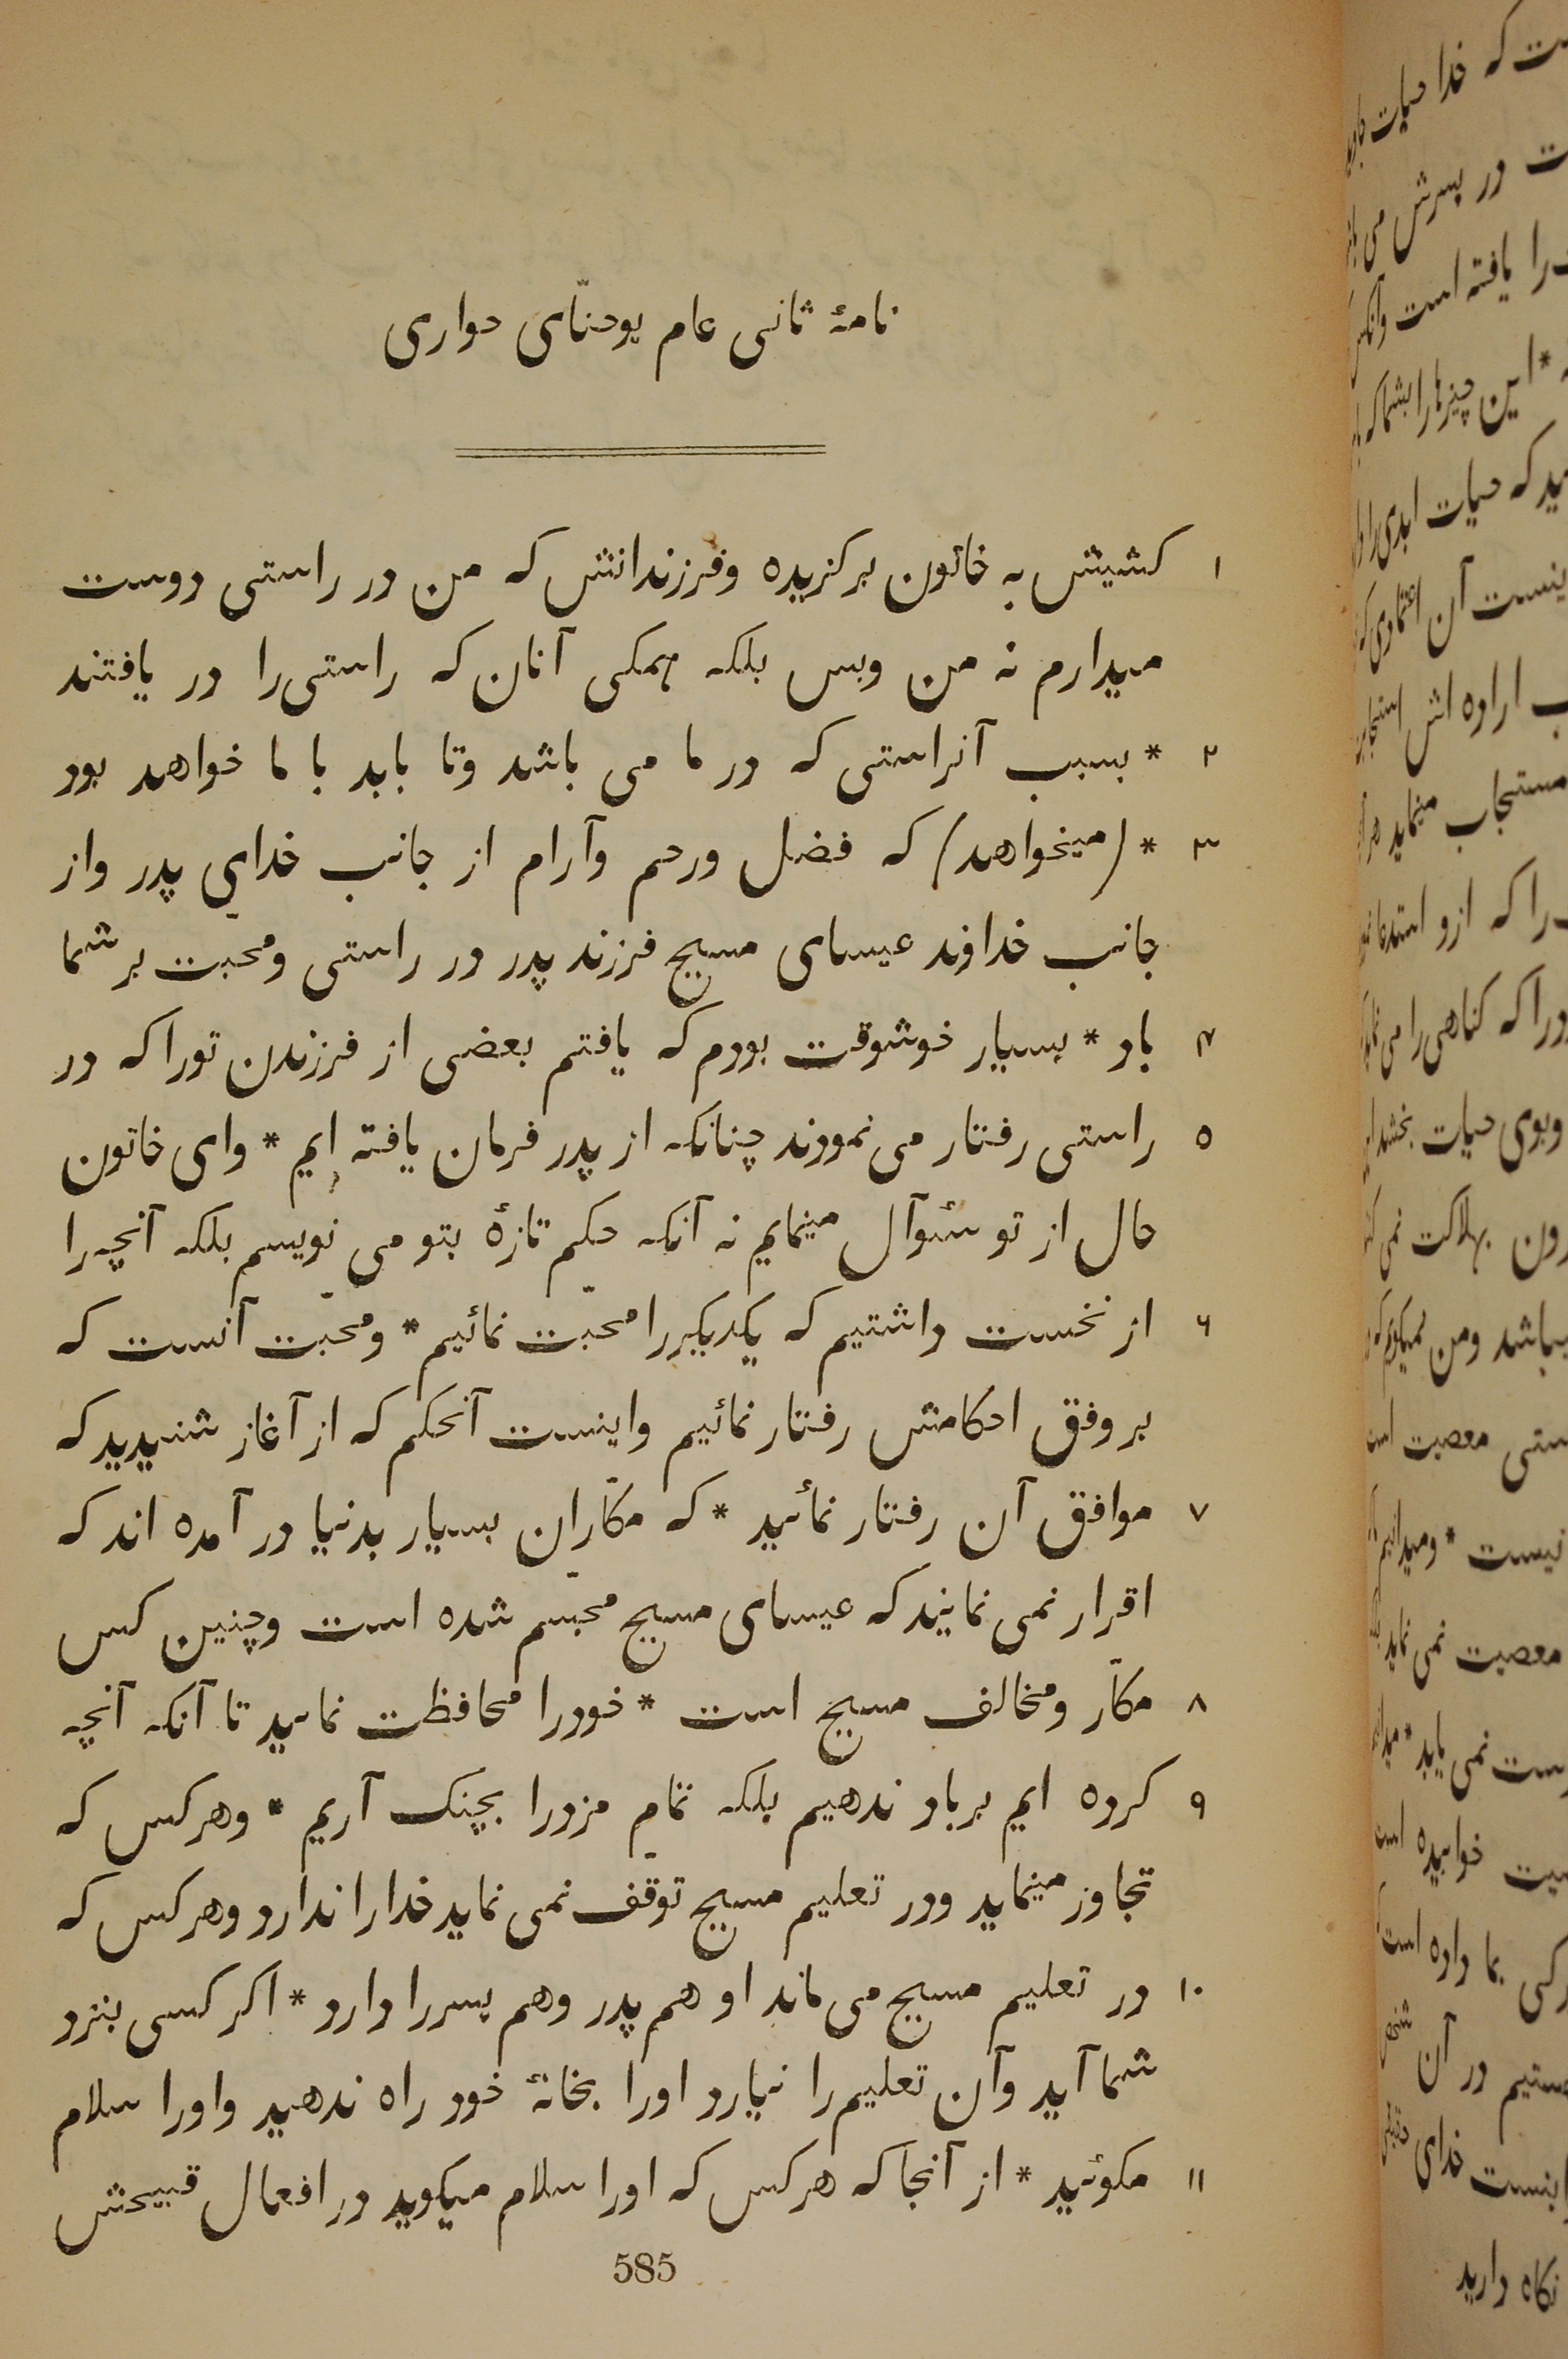 نامهٔ ثانی عام یوحنّای حواری
۱ کشیش به خاتون برکزیده وفرزندانش که من در راستی دوست
میدارم نه من وبس بلکه همکی آنان که راستی را در یافتند
۲ * بسبب آنراستی که در ما می باشد وتا بابد با ما خواهد بود
۳ * (میخواهد) که فضل ورحم وآرام از جانب خدای پدر واز
جانب خداوند عیسای مسیح فرزند پدر در راستی ومحبت بر شما
۴ باد * بسیار خوشوقت بودم که یافتم بعضی از فرزندن توراکه در
۵ راستی رفتار می نمودند چنانکه از پدر فرمان یافته ایم * وای خاتون
حال از تو سُوآل مینمایم نه آنکه حکم تازهٔ بتو می نویسم بلکه آنچه را
۶ از نخست داشتیم که یکدیکررا محبّت نمائیم * ومحبّت آنست که
بر وفق احکامش رفتار نمائیم واینست آنحکم که از آغاز شنیدید که
۷ موافق آن رفتار نمائید * که مکّاران بسیار بدنیا در آمده اند که
اقرار نمی نمایند که عیسای مسیح مجسّم شده است وچنین کس
۸ مکّار ومخالف مسیح است * خودرا محافظت نمایید تا آنکه آنچه
۹ کرده ایم برباد ندهیم بلکه تمام مزدرا بچنک آریم * وهرکس که
تجاوز مینماید ودر تعلیم مسیح توقّف نمی نماید خدارا ندارد وهرکس که
۱۰ در تعلیم مسیح می ماند او هم پدر وهم پسررا دارد * اکر کسی بنزد
شما آید وآن تعلیم را نیارد اورا بخانهٔ خود راه ندهید واورا سلام
۱۱ مکوئید * از آنجا که هرکس که اورا سلام میکوید در افعال قبیحش
585